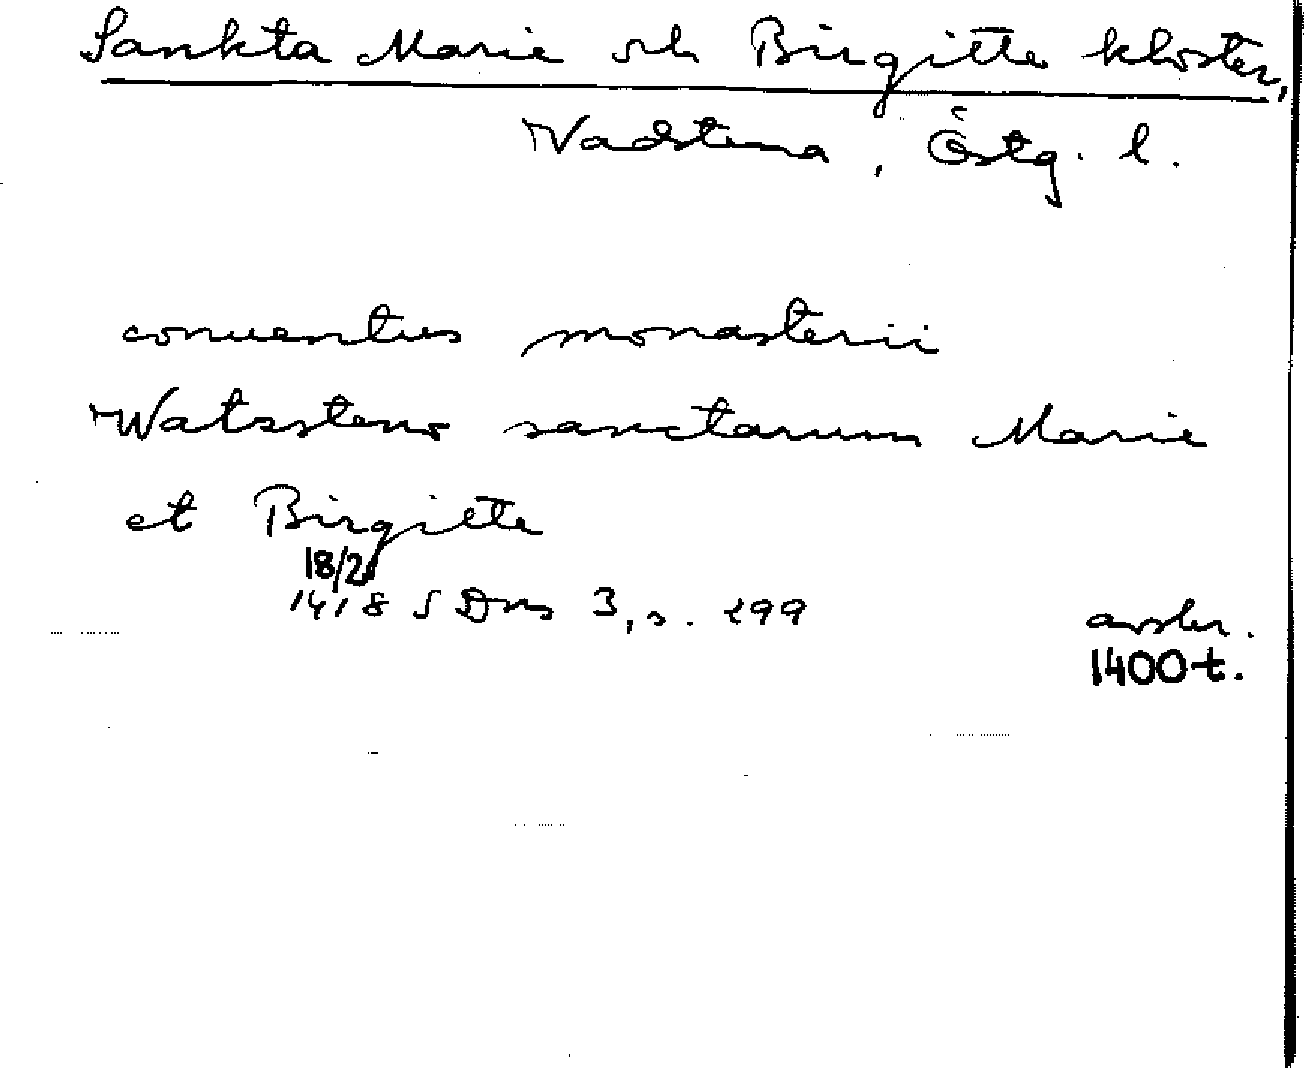 Sankta Marie och Birgitte kloster,
Vadstena, Östg. l.
conuentus monasterii
Watzsteno sanctarum Marie
et Birgitte
18/2
1418 SDns 3, s. 299
avskr.
1400-t.